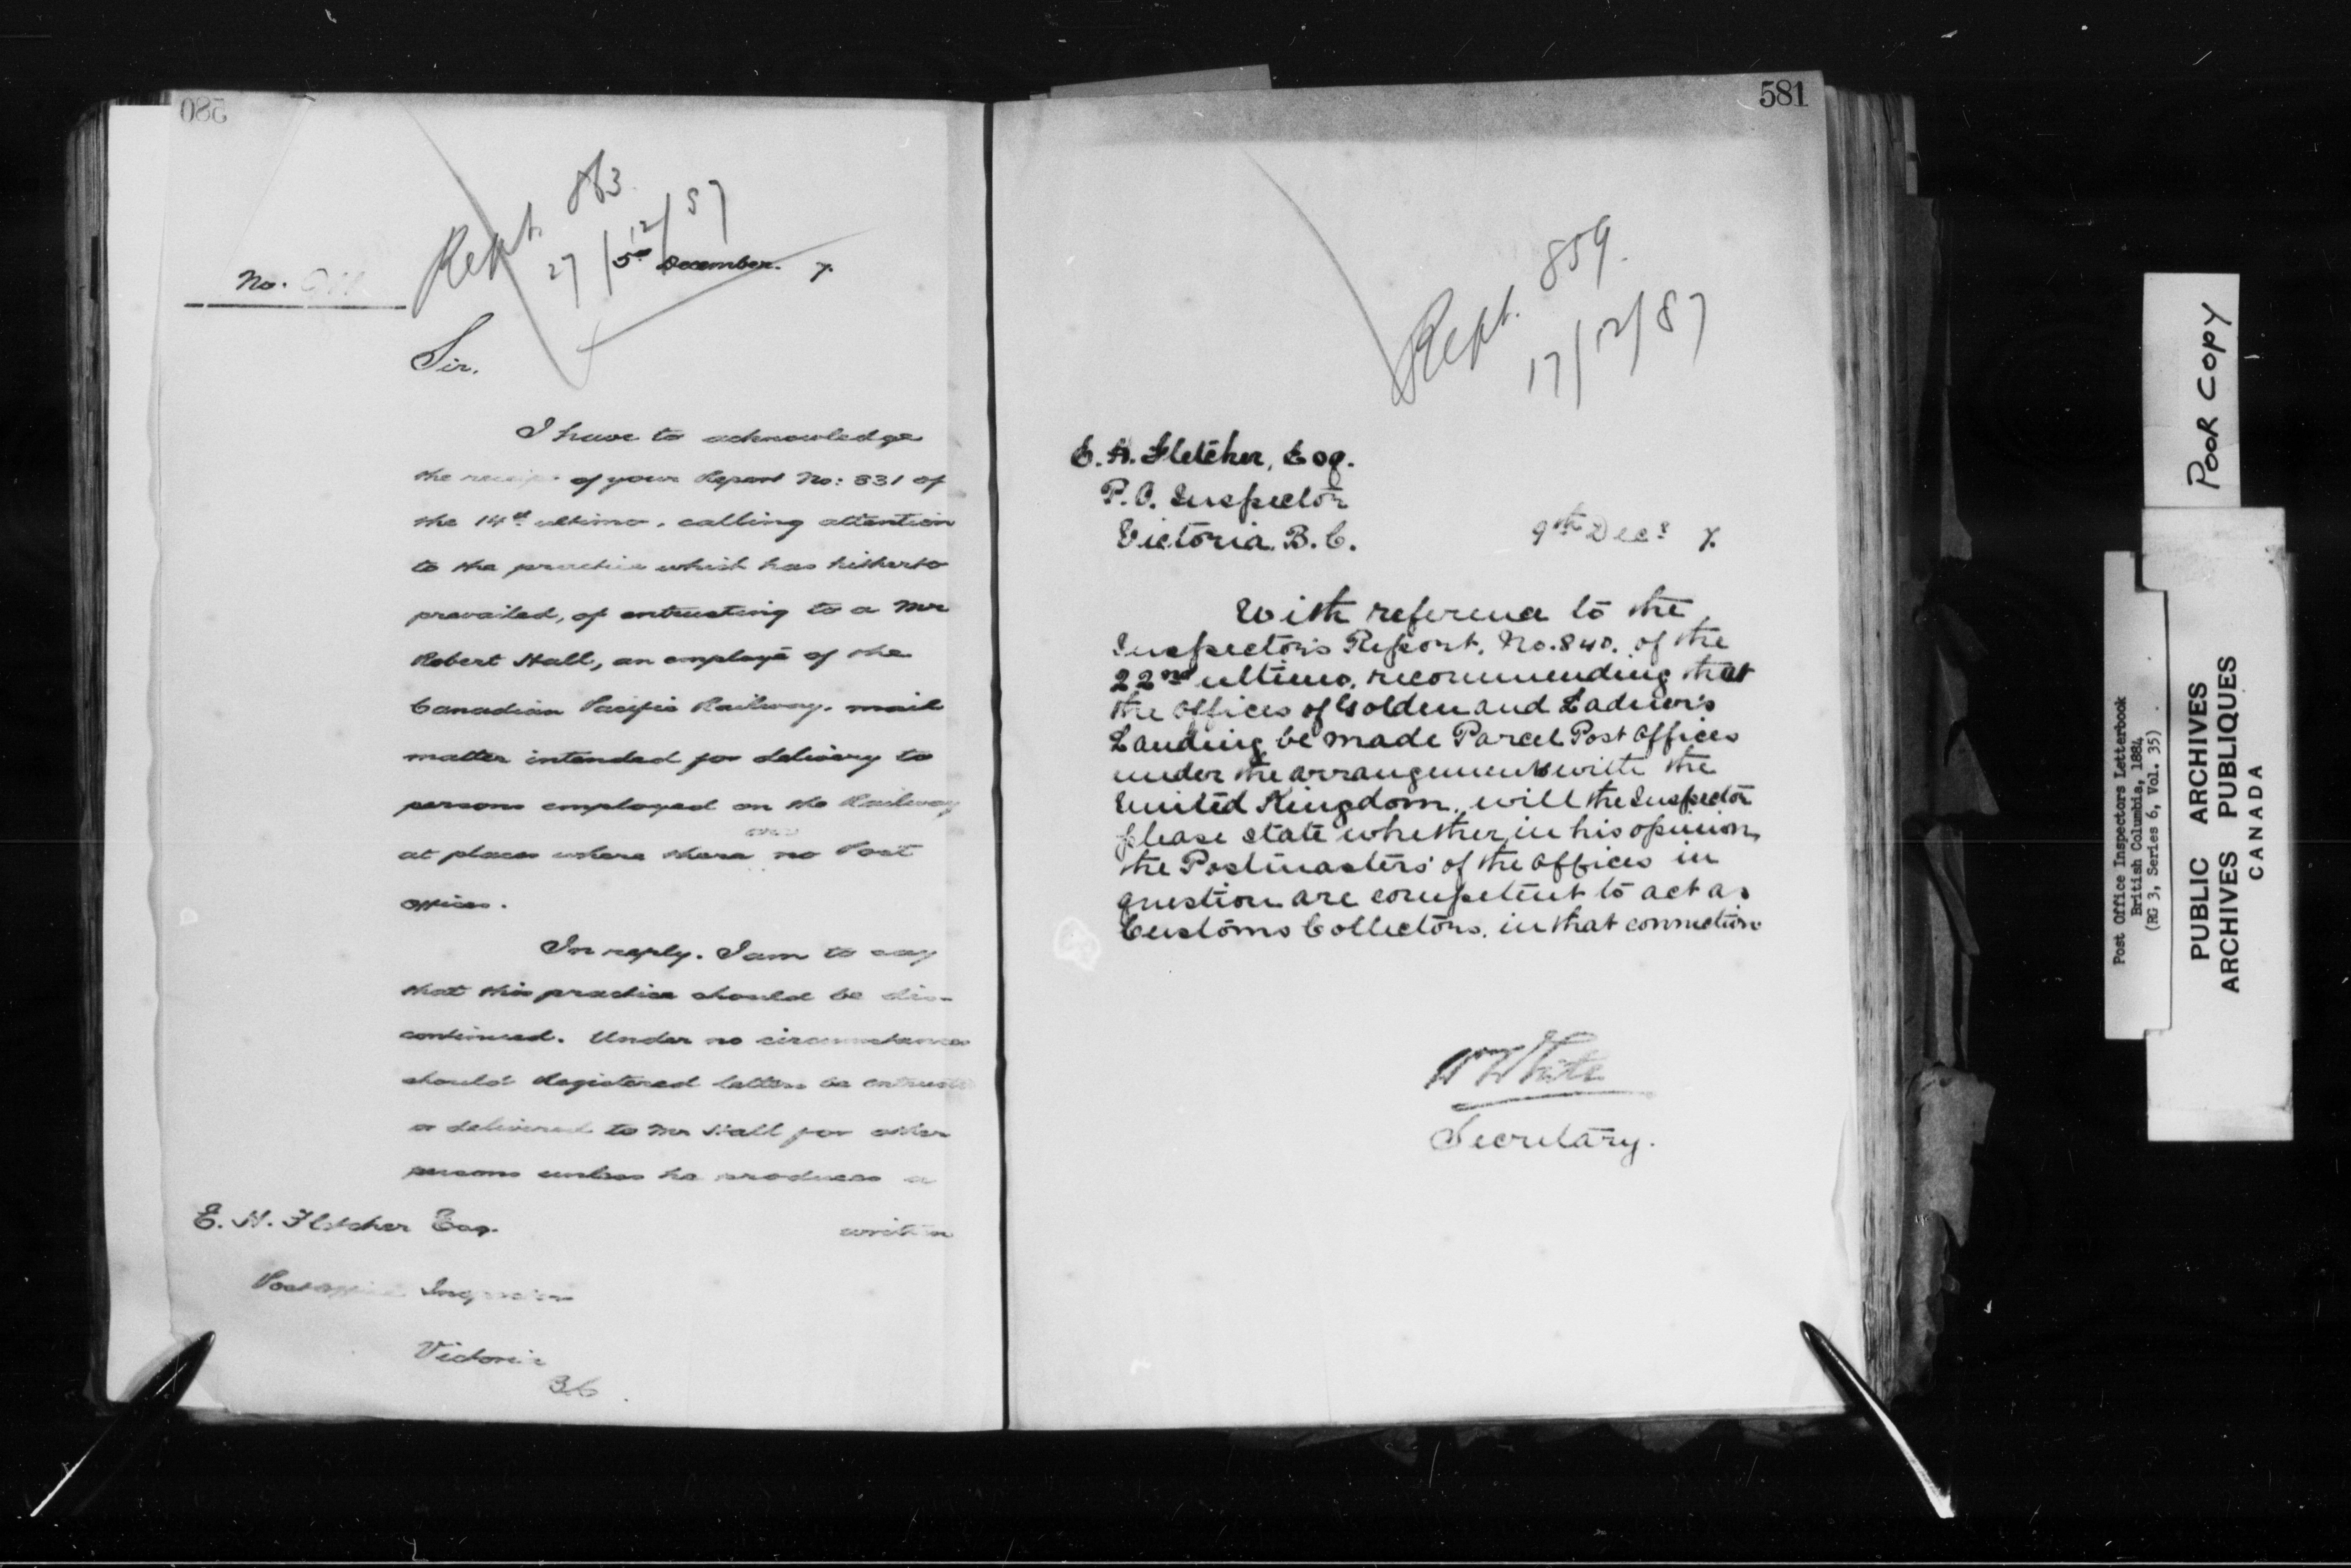 580
Rept. 863
27/12/87
No.
5th December. 7.
Sir.
I have to acknowledge
the receipt of your Report No: 831 of
the 14th ultimo, calling attention
to the practice which has hitherto
prevailed, of entrusting to a Mr
Robert Hall, an employé of the
Canadian Pacific Railway, mail
matter intended for delivery to
persons employed on the Railway
at places where there are no Post
offices.
In reply, I am to say
that this practice should be dis-
continued. Under no circumstances
should Registered letters be entrusted
or delivered to Mr Hall for other
persons unless he produces a
written
E. H. Fletcher Esq.
Post Office Inspector
Victoria
B.C.
581
Rept. 859.
17/12/87
E. H. Fletcher, Esq.
P.O. Inspector
Victoria. B.C.
9th Decr 7.
With reference to the
Inspector's Report, No. 840. of the
22nd ultimo, recommending that
the offices of Golden and Ladner's
Landing be made Parcel Post Offices
under the arrangement with the
United Kingdom, will the Inspector
please state whether, in his opinion,
the Postmasters of the offices in
question are competent to act as
Customs Collectors, in that connection
Wm White
Secretary.
POOR COPY
Post Office Inspectors Letterbook
British Columbia, 1884
(RG 3, Series 6, Vol. 35)
PUBLIC ARCHIVES
ARCHIVES PUBLIQUES
CANADA